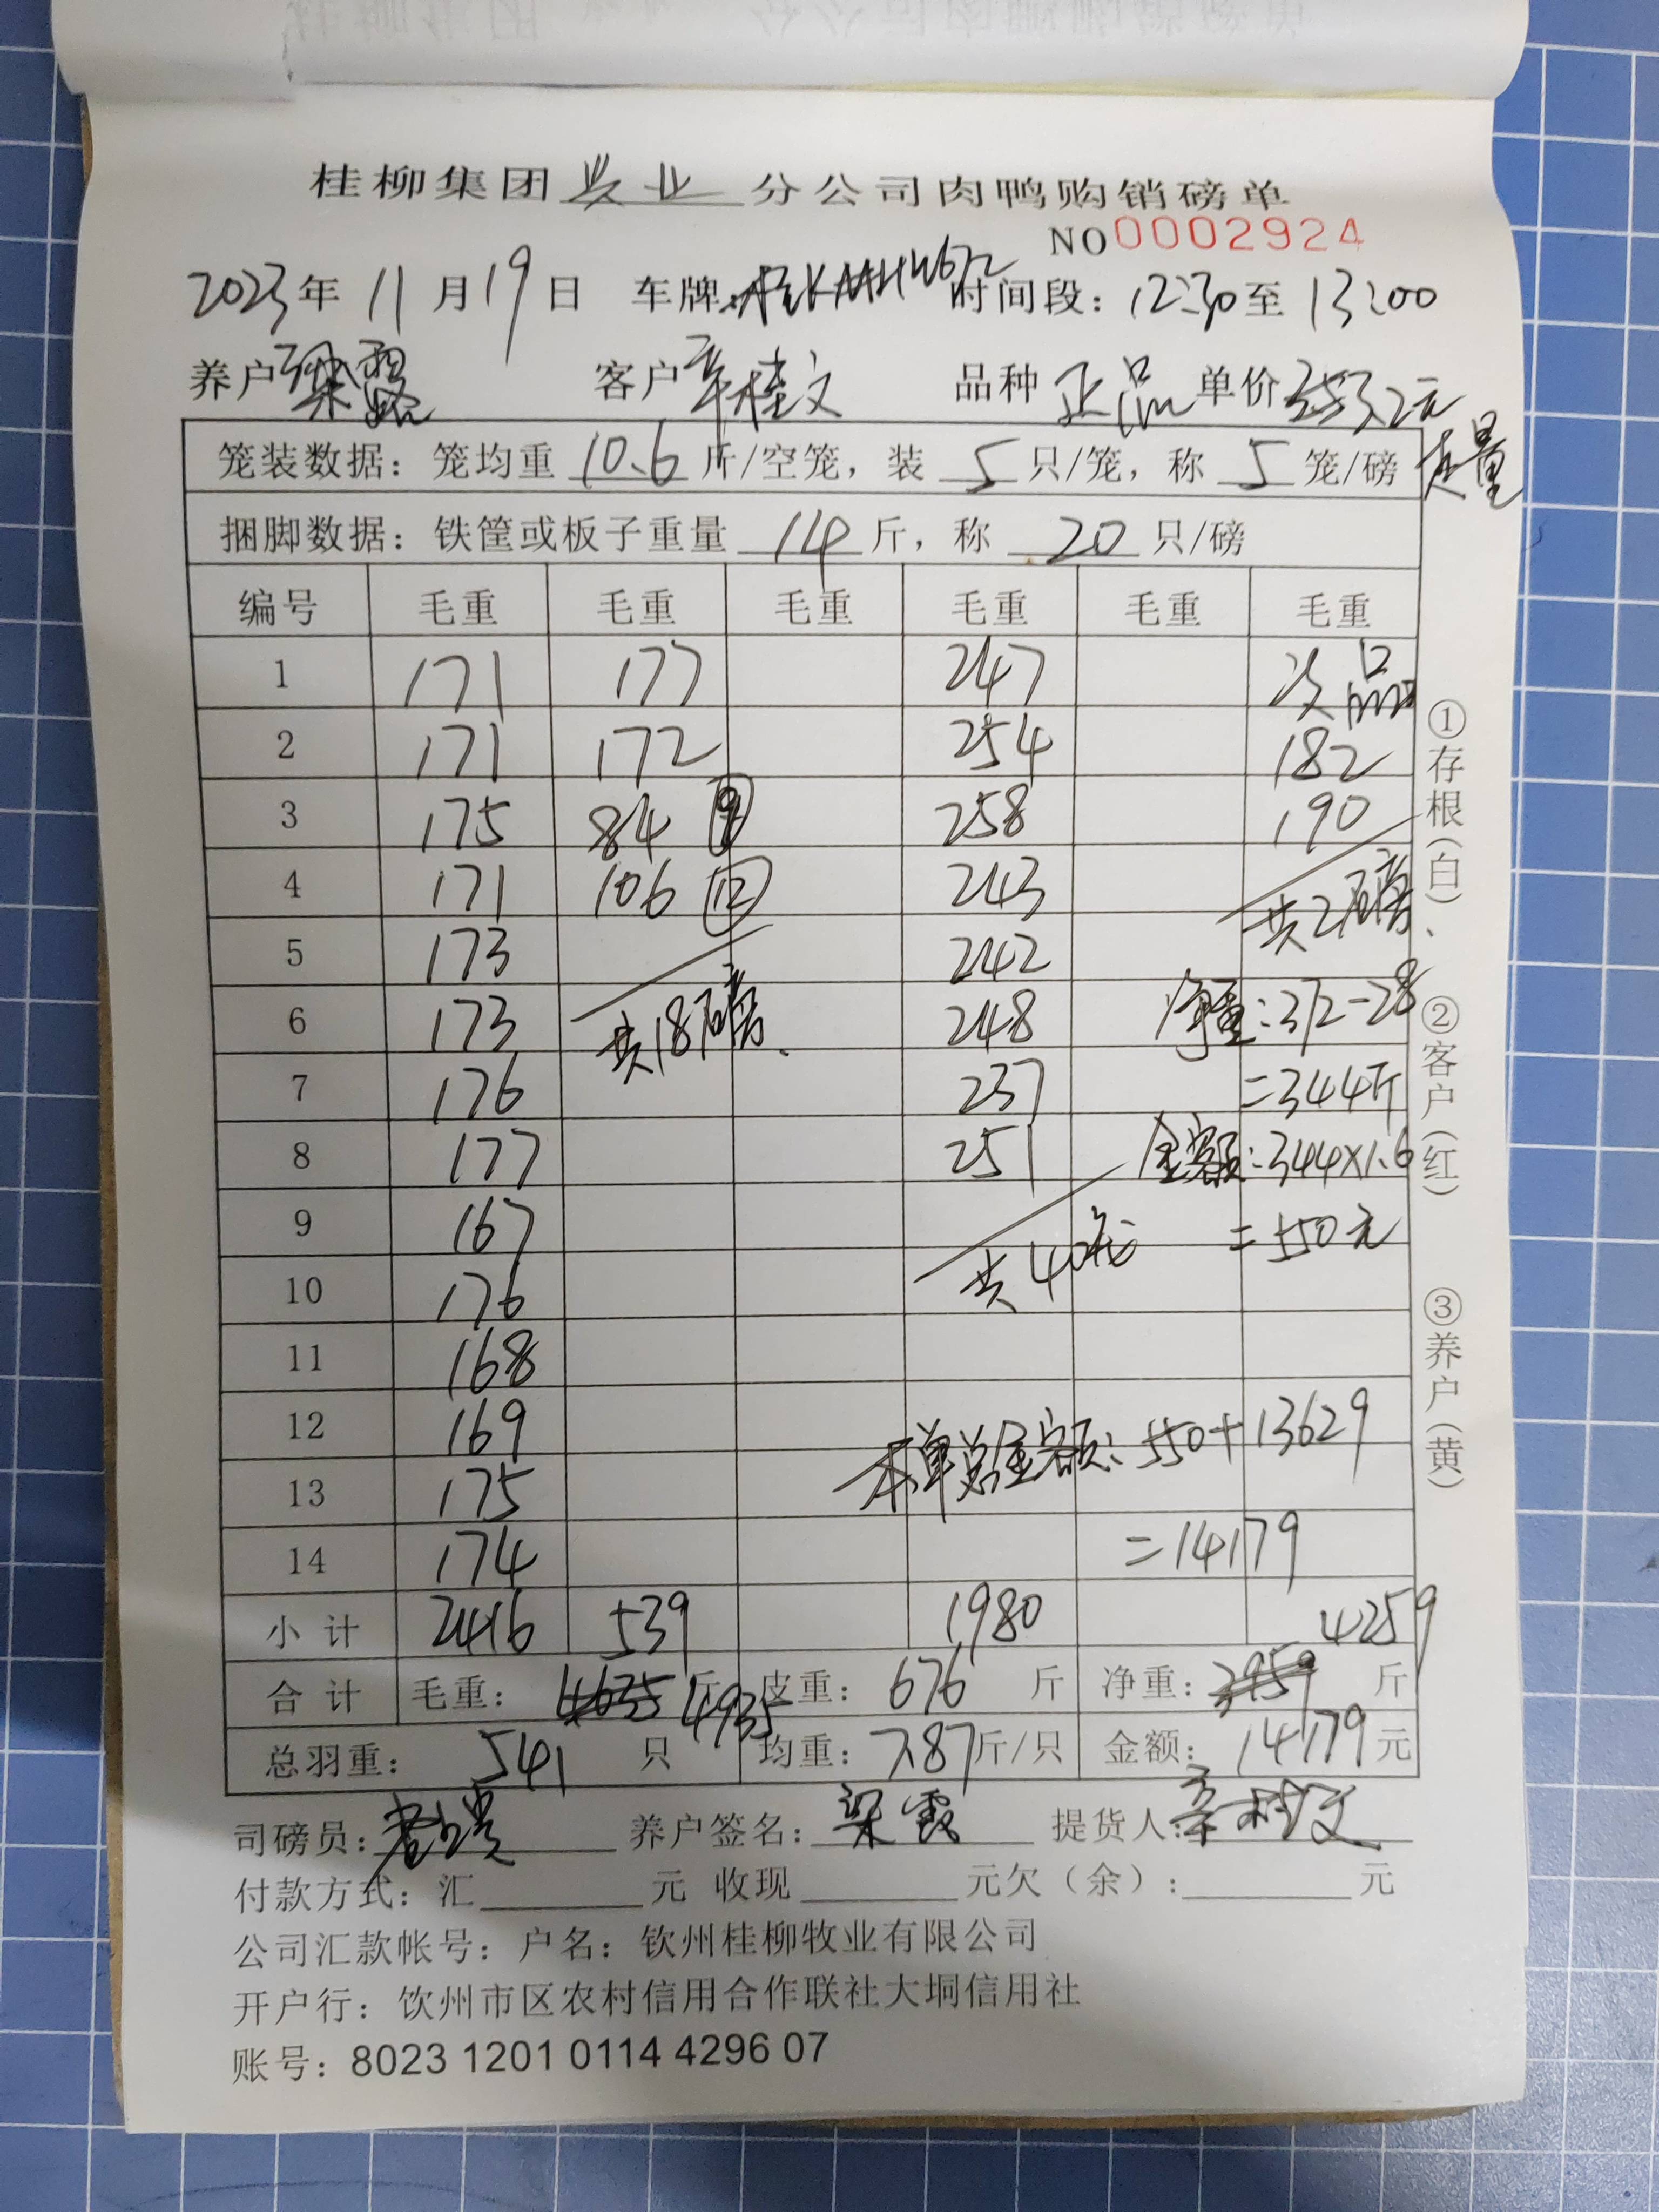 桂柳集团兴业分公司肉鸭购销磅单
NO 0002924
2023年11月19日 车牌: 时间段: 12:30至13:00
养户梁霞 客户辛桂文 品种 正品 单价 3.2元
笼装数据: 笼均重 10.6 斤/空笼, 装 5 只/笼, 称 5 笼/磅 走量
捆脚数据: 铁筐或板子重量 14 斤, 称 20 只/磅
编号 毛重 毛重 毛重 毛重 毛重 毛重
1 171 177 247 次品
2 171 172 254 182
3 175 84 ⑨ 258 190
4 171 106 ⑫ 243 共2磅
5 173 242
6 173 共18磅. 248 净重:372-28
7 176 237 =344斤
8 177 251 金额:344×1.6
9 167 共40笼 =550元
10 176
11 168
12 169 本单总金额: 550+13629
13 175
14 174 =14179
小计 2416 539 1980 4259
合计 毛重: 4635 斤 4935 皮重: 676 斤 净重: 3959 斤
总羽重: 541 只 均重: 7.87斤/只 金额: 14179元
司磅员: 养户签名: 梁霞 提货人: 辛桂文
付款方式: 汇 元 收现 元欠(余): 元
公司汇款帐号: 户名: 钦州桂柳牧业有限公司
开户行: 饮州市区农村信用合作联社大垌信用社
账号: 8023 1201 0114 4296 07
①存根(白)、②客户(红) ③养户(黄)